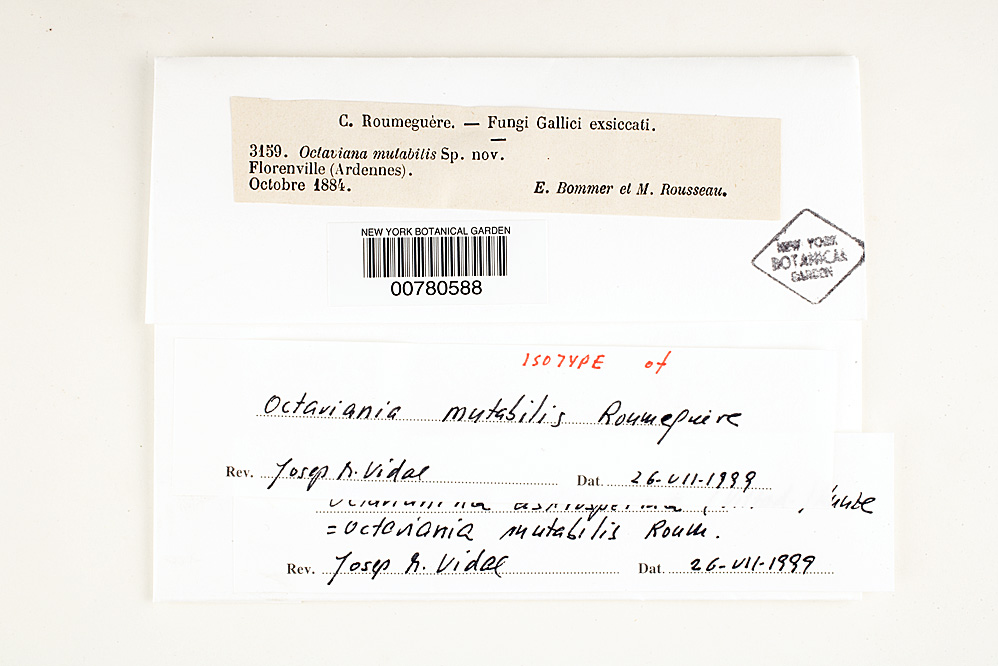 C. Roumeguère. — Fungi Gallici exsiccati.
3159. Octaviana mutabilis Sp. nov.
Florenville (Ardennes).
Octobre 1884.
E. Bommer et M. Rousseau.
NEW YORK BOTANICAL GARDEN
00780588
NEW YORK
BOTANICAL
GARDEN
ISOTYPE of
Octaviania mutabilis Roumeguère
Rev. Josep M. Vidal Dat. 26-VII-1999
= Octaviania mutabilis Roum.
Rev. Josep M. Vidal Dat. 26-VII-1999